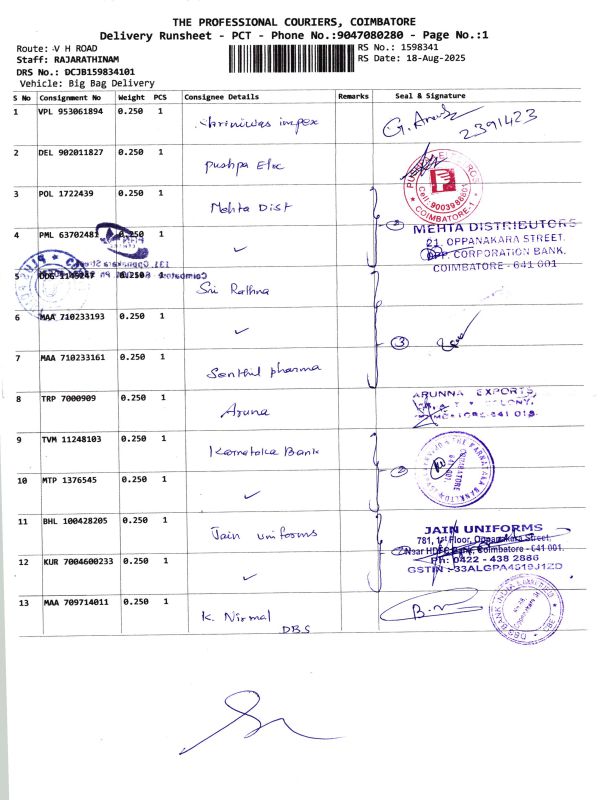 THE PROFESSIONAL COURIERS, COIMBATORE
Delivery Runsheet - PCT - Phone No.:9047080280 - Page No.:1
Route: V H ROAD
RS No.: 1598341
Staff: RAJARATHINAM
RS Date: 18-Aug-2025
DRS No.: DCJB159834101
Vehicle: Big Bag Delivery
S No Consignment No Weight PCS Consignee Details Remarks Seal & Signature
1 VPL 953061894 0.250 1 Shriniwas impex G. 2391423
2 DEL 902011827 0.250 1 Pushpa Elec
Cell: 9003988801
COIMBATORE-1
3 POL 1722439 0.250 1 Mehta Dist
4 PML 63702481 0.250 1 ✓ 2
MEHTA DISTRIBUTORS
21, OPPANAKARA STREET,
OPP. CORPORATION BANK,
COIMBATORE - 641 001
5 0.250 1 Sri Rathna
6 MAA 710233193 0.250 1 ✓ 3
7 MAA 710233161 0.250 1 Senthil pharma
8 TRP 7000909 0.250 1 Aruna
ARUNNA EXPORTS,
9 TVM 11248103 0.250 1 Karnataka Bank
10 MTP 1376545 0.250 1 ✓ 2
COIMBATORE
11 BHL 100428205 0.250 1 Jain uniforms
JAIN UNIFORMS
781, 1st Floor, Oppanakara Street,
Near HDFC Bank, Coimbatore - 641 001.
Ph: 0422 - 438 2886
GSTIN :-33ALGPA4519J1ZD
12 KUR 7004600233 0.250 1 ✓ 2
13 MAA 709714011 0.250 1 K. Nirmal
DBS
DBS BANK INDIA LIMITED